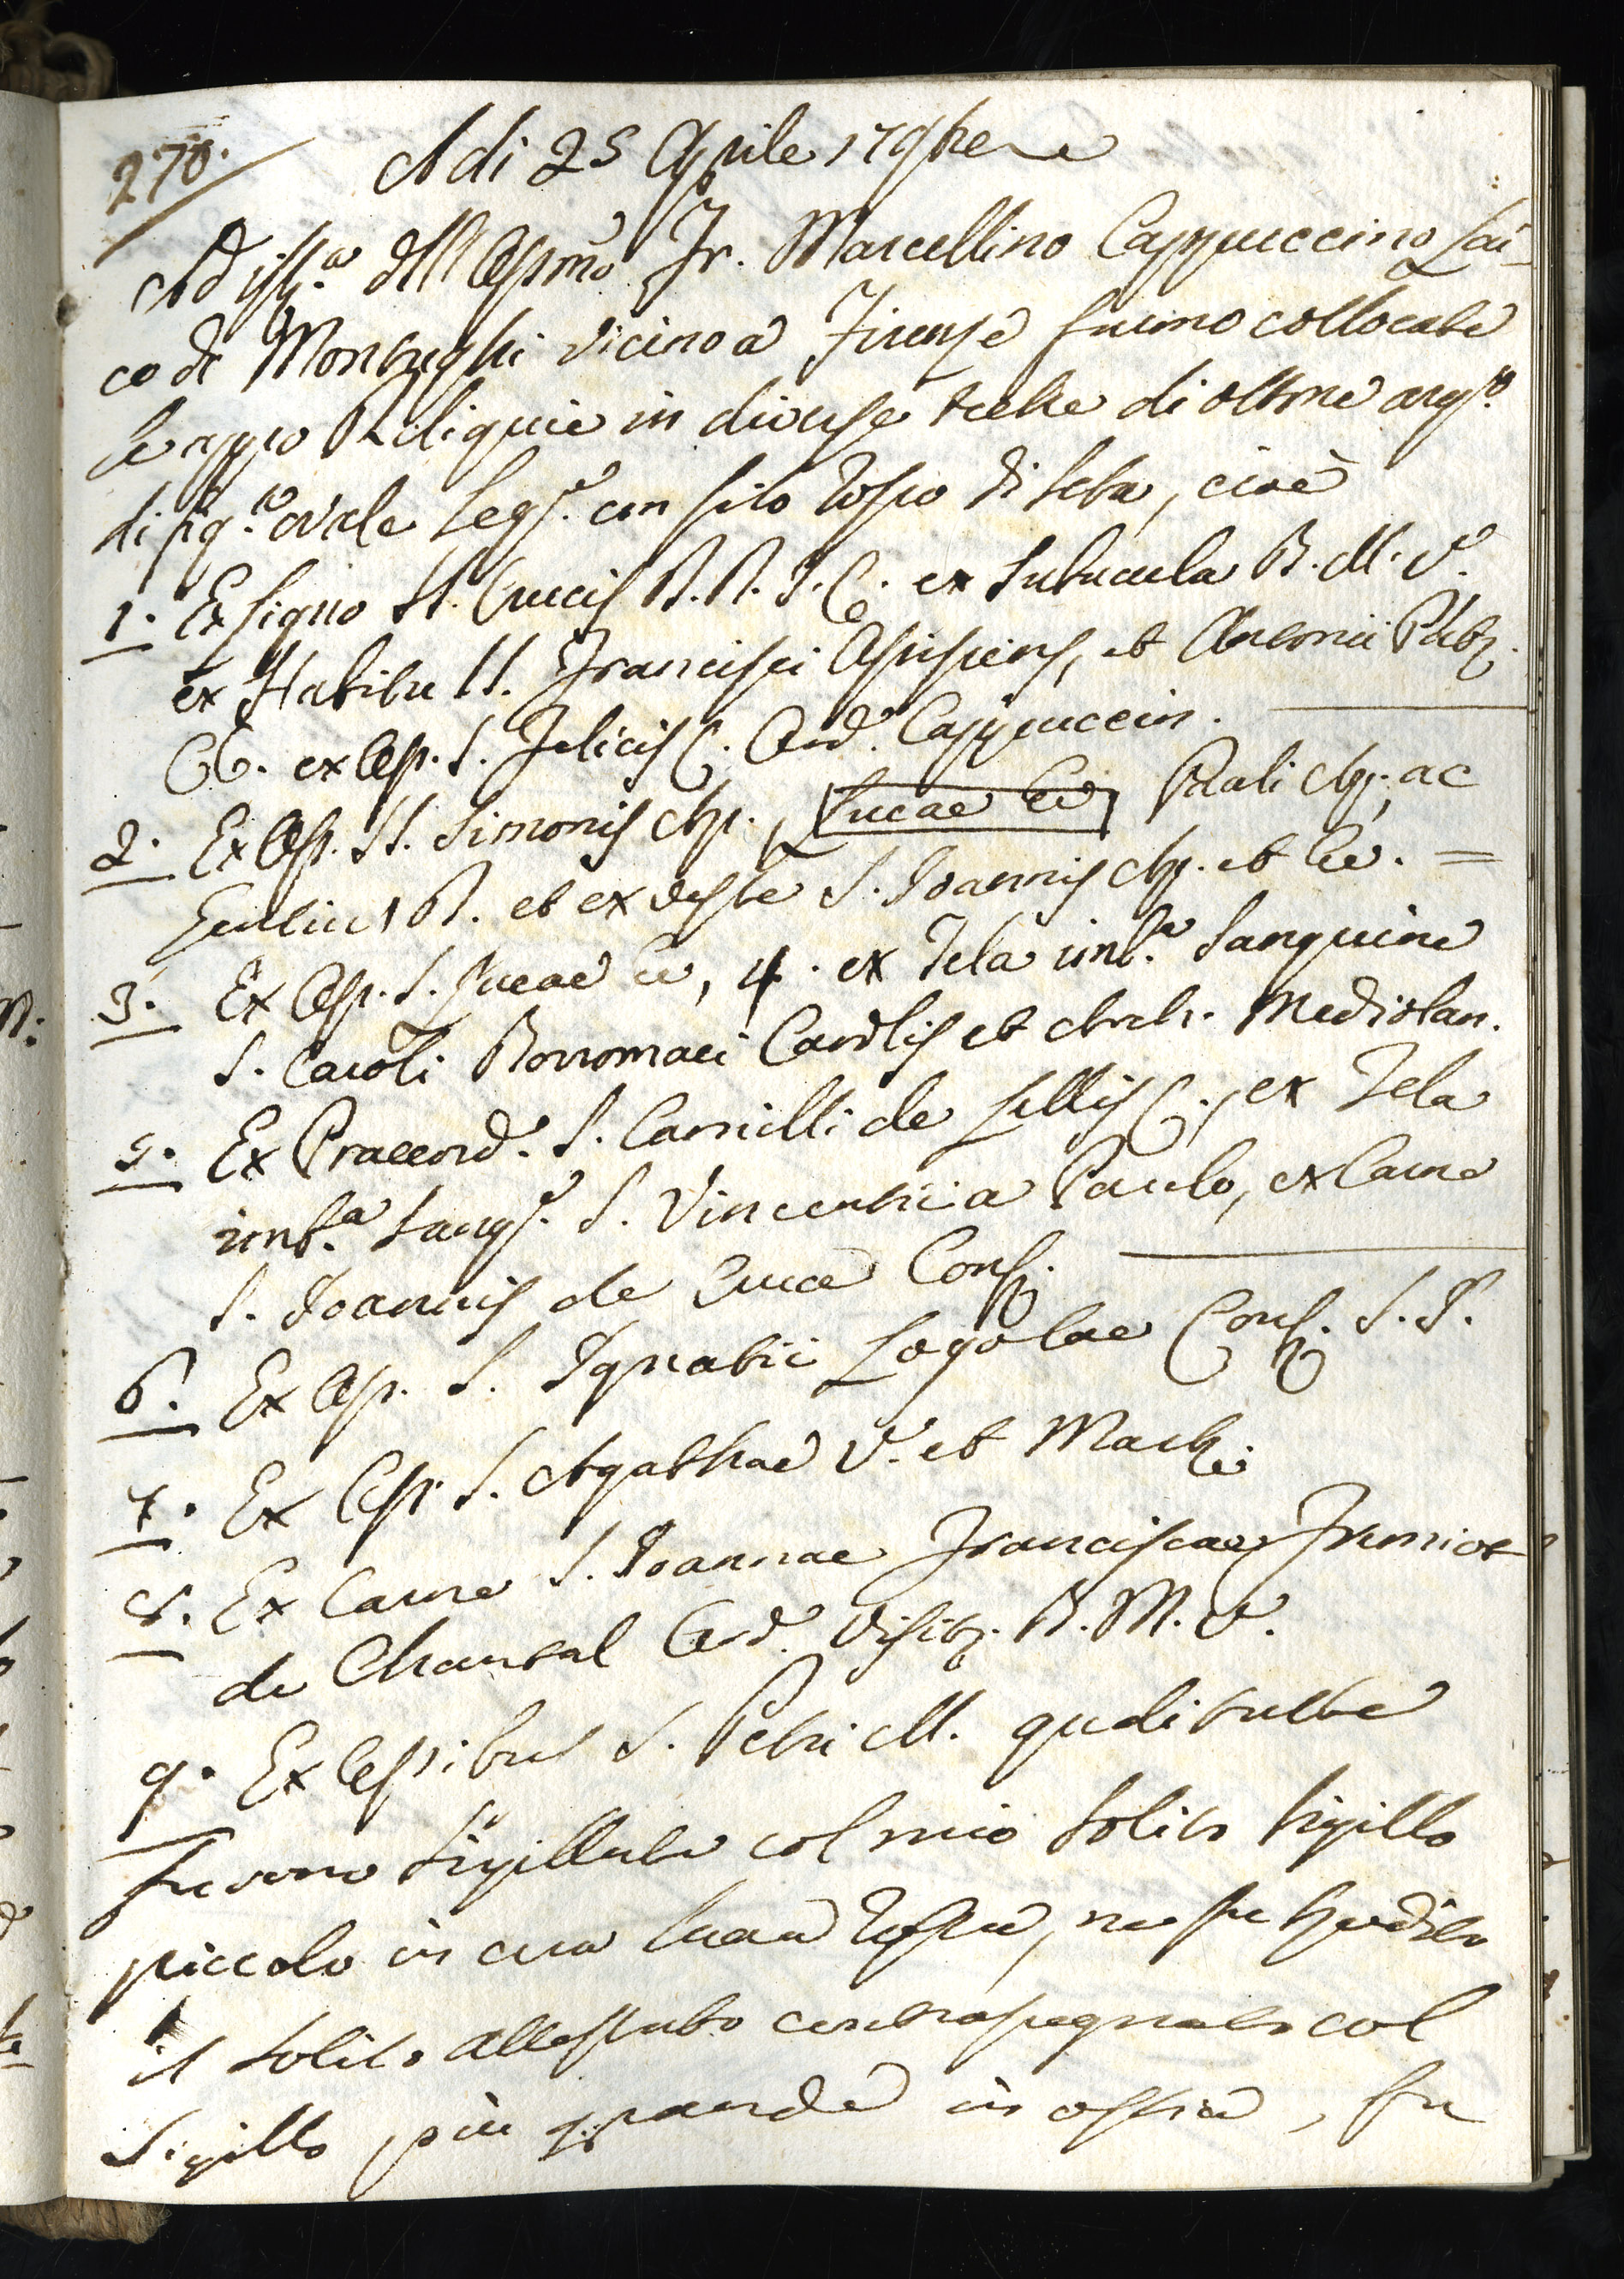 270.
A di 25 Aprile 179
Ad ist.a dell Fr. Marcellino Cappuccino Lai-
co di Montughi vicino a Firenze furno collocate
le appo Reliquie in diverse teche di ottone arg.to
di fig.a ovale leg.e con filo rosso di seta, cioè
1. Ex Ligno SS. Crucis D. N. J. C. ex Subucula B. M. V.
ex Habitu SS. Francisci Assisiens, et Antonii Patav.
CC. ex Oss. S. Felicis C. Ord. Cappuccin.
2. Ex Oss. SS. Simonis Ap., Lucae Ev, Pauli Ap. ac
et ex veste S. Joannis Ap. et Ev. =
3. Ex Oss. S. Lucae Ev, 4. ex Tela imb.a Sanguine
S. Caroli Borromaei Cardlis et Arch. Mediolan.
5. Ex Praecord. S. Camilli de Lellis C., ex Tela
imb.a Sang.e S. Vincentii a Paulo, ex Carne
S. Joannis de Cruce Conf.
6. Ex Oss. S. Ignatii Logolae Conf. S. J.
7. Ex Oss. S. Agathae V. et Mart.
8. Ex Carne S. Joannae Franciscae Fremiot
de Chantal Ord. Visit. B. M. V.
9. Ex Ossibus S. Petri M. quali tutte
furono sigillate col mio solito sigillo
piccolo in cera rossa, ne fu spedito
il solito attestato contrasegnato col
Sigillo più grande in ostia, fu